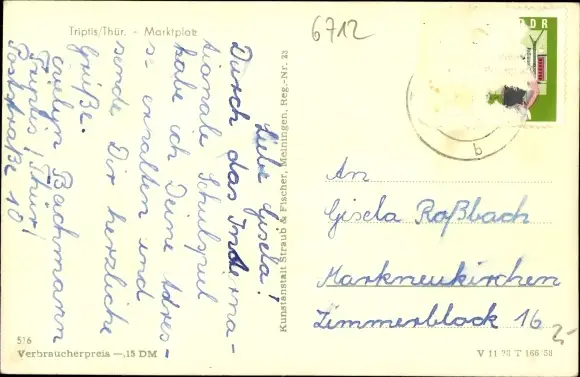 Triptis/Thür. - Marktplatz
6712
DDR
b
Liebe Gisela!
Durch das Interna-
tionale Schulspiel
habe ich Deine Adres-
se erhalten und
sende Dir herzliche
Grüße.
Evelyn Bachmann
Triptis/Thür/
Poststraße 10
Kunstanstalt Straub & Fischer, Meiningen, Reg.-Nr. 23
An
Gisela Roßbach
Markneukirchen
Zimmerblock 16
2,-
516
Verbraucherpreis —.15 DM
V 11 28 T 166 58